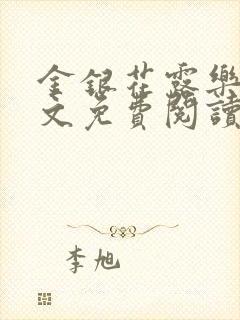 金銀花露樂
文免費閱讀
李旭